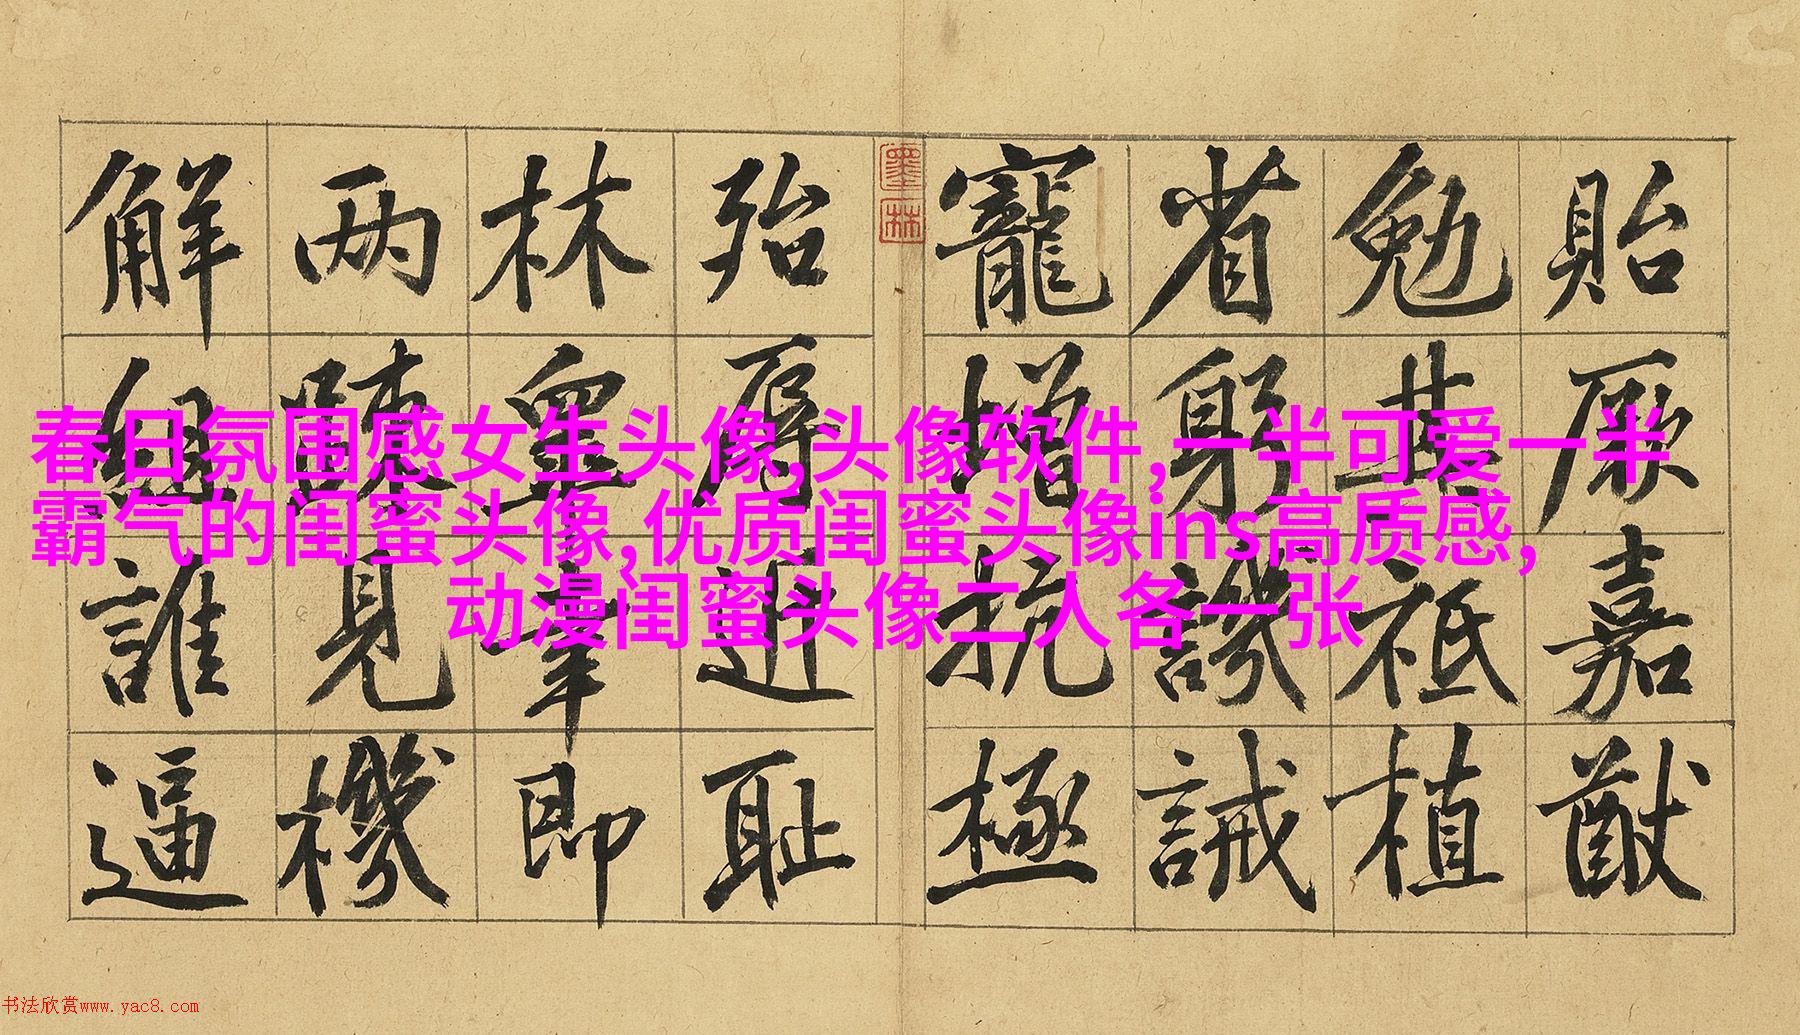 貽厥嘉猷
勉其祗植
省躬譏誡
寵增抗極
墨林
殆辱近耻
林皋幸即
两疎見機
解組誰逼
春日氛围感女生头像,头像软件,一半可爱一半
霸气的闺蜜头像,优质闺蜜头像ins高质感,
动漫闺蜜头像二人各一张
书法欣赏www.yac8.com